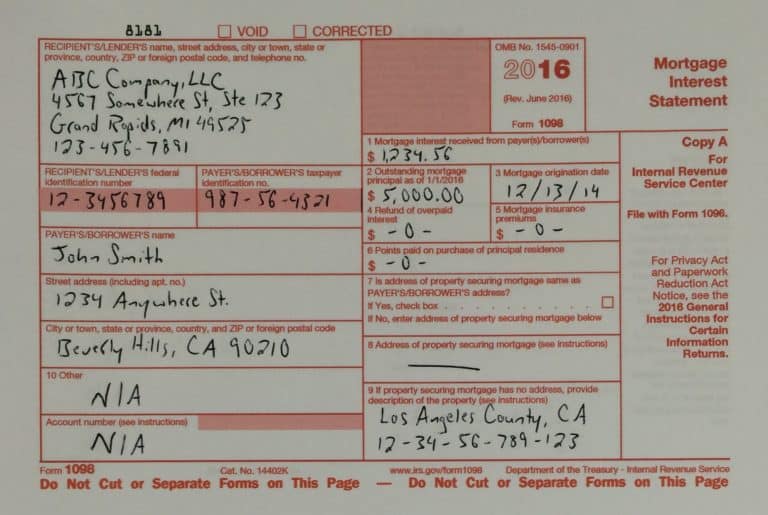 8181
VOID
CORRECTED
RECIPIENT'S/LENDER'S name, street address, city or town, state or
province, country, ZIP or foreign postal code, and telephone no.
ABC Company, LLC
4567 Somewhere St, Ste 123
Grand Rapids, MI 49525
123-456-7891
OMB No. 1545-0901
2016
(Rev. June 2016)
Form 1098
Mortgage
Interest
Statement
1 Mortgage interest received from payer(s)/borrower(s)
$ 1,234.56
Copy A
For
Internal Revenue
Service Center
File with Form 1096.
For Privacy Act
and Paperwork
Reduction Act
Notice, see the
2016 General
Instructions for
Certain
Information
Returns.
RECIPIENT'S/LENDER'S federal
identification number
12-3456789
PAYER'S/BORROWER'S taxpayer
identification no.
987-56-4321
2 Outstanding mortgage
principal as of 1/1/2016
$ 5,000.00
3 Mortgage origination date
12/13/14
4 Refund of overpaid
interest
$ -0-
5 Mortgage insurance
premiums
$ -0-
PAYER'S/BORROWER'S name
John Smith
6 Points paid on purchase of principal residence
$ -0-
Street address (including apt. no.)
1234 Anywhere St.
7 Is address of property securing mortgage same as
PAYER'S/BORROWER'S address?
If Yes, check box . . . . . . . . . . .
If No, enter address of property securing mortgage below
City or town, state or province, country, and ZIP or foreign postal code
Beverly Hills, CA 90210
8 Address of property securing mortgage (see instructions)
10 Other
N/A
9 If property securing mortgage has no address, provide
description of the property (see instructions)
Los Angeles County, CA
12-34-56-789-123
Account number (see instructions)
N/A
Form 1098
Cat. No. 14402K
www.irs.gov/form1098
Department of the Treasury - Internal Revenue Service
Do Not Cut or Separate Forms on This Page — Do Not Cut or Separate Forms on This Page